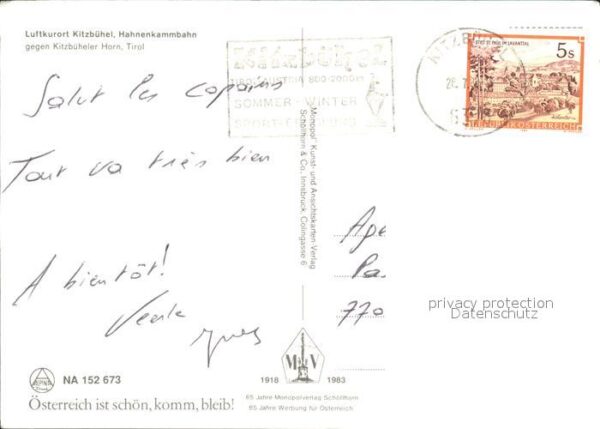 Luftkurort Kitzbühel, Hahnenkammbahn
gegen Kitzbüheler Horn, Tirol
Salut les copains
Tout va très bien
A bientôt!
Yves
NA 152 673
Österreich ist schön, komm, bleib!
Kitzbühel
TIROL AUSTRIA 800-2000m
SOMMER - WINTER
KITZBÜHEL
5s
STIFT ST. PAUL IM LAVANTTAL
REPUBLIK ÖSTERREICH
"Monopol" Kunst- und Ansichtskarten-Verlag
Schöllhorn & Co., Innsbruck, Colingasse 6
Age
Pa.
770
privacy protection
Datenschutz
M V
1918 1983
65 Jahre Monopolverlag Schöllhorn
65 Jahre Werbung für Österreich